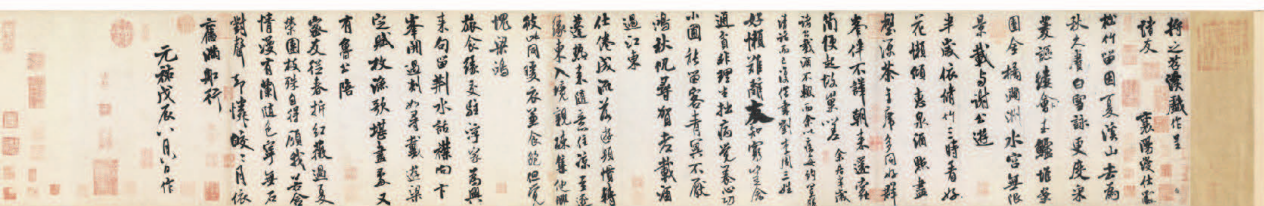 將之苕溪戲作呈
諸友　襄陽漫仕黻
松竹留因夏溪山去為
秋久賡白雪詠更度采
菱謳縷玉鱸堆案
團金橘滿洲水宮無限
景載與謝公遊
半歲依修竹三時看好
花懶傾惠泉酒點盡
壑源茶主席多同好群
峯伴不嘩朝來還蠹
簡便起故巢嗟　余居半歲
諸公載酒不輟而余以疾每約置膳
清話而已復借書劉李周三姓
好懶難辭友知窮豈念
通貧非理生拙病覺養心功
小圃能留客青冥不厭
鴻秋帆尋賀老載酒
過江東
仕倦成流落游頻慣轉
蓬熱來隨意住涼至逐
緣東入境親疎集他鄉
彼此同暖衣兼食飽但覺
愧梁鴻
旅食緣交駐浮家為興
來句留荆水話襟向卞
峯開過剡如尋戴遊梁
定賦枚漁歌堪畫處又
有魯公陪
密友從春拆紅薇過夏
榮團枝殊自得顧我若含
情漫有蘭隨色寧無石
對聲却憐皎皎月依
舊滿船行
元祐戊辰八月八日作